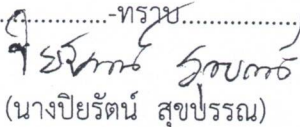 ...............-ทราบ....................
(นางปิยรัตน์ สุขบรรณ)